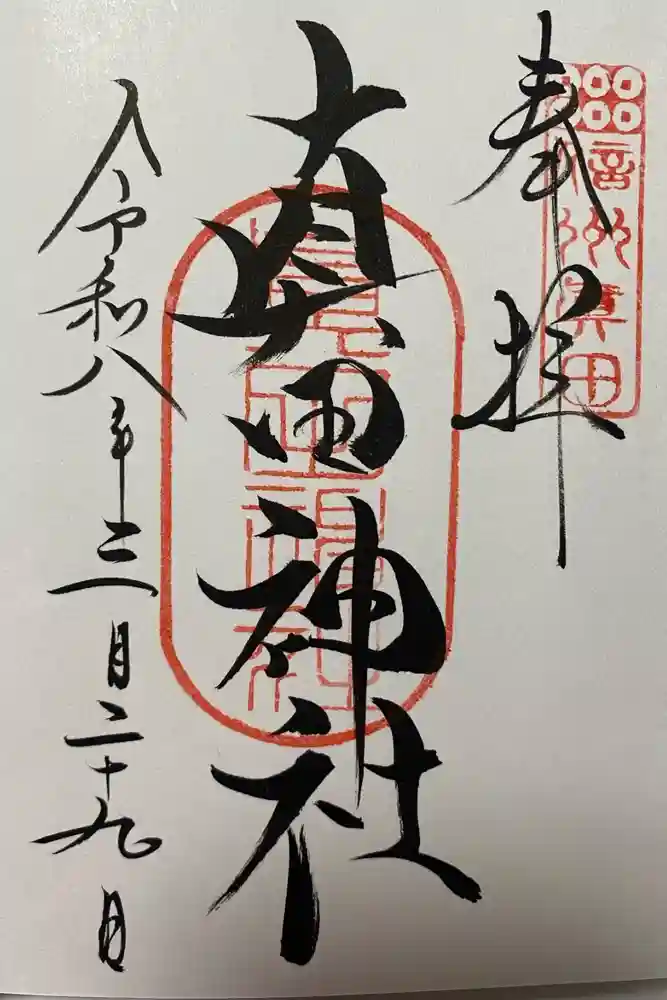 奉拝
信州真田
真田神社
令和八年三月二十九日